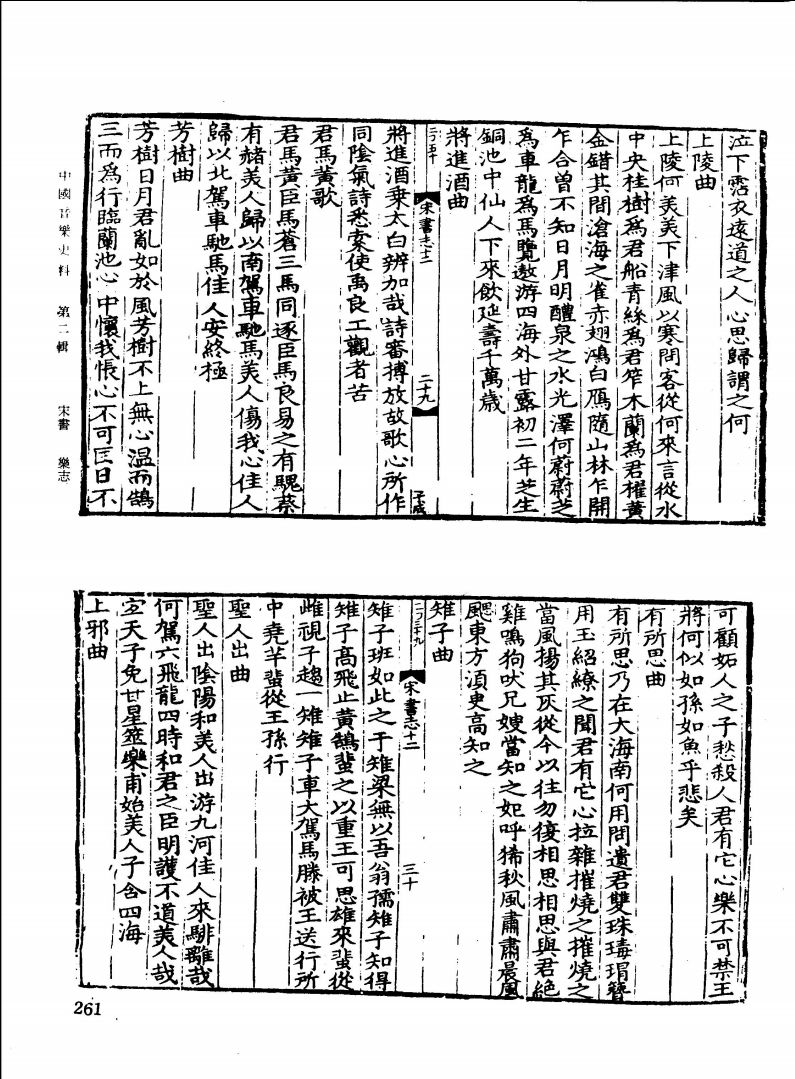 泣下霑衣遠道之人心思歸謂之何
上陵曲
上陵何美美下津風以寒問客從何來言從水
中央桂樹爲君船青絲爲君笮木蘭爲君櫂黃
金錯其間滄海之雀赤翅鴻白鴈隨山林乍開
乍合曾不知日月明醴泉之水光澤何蔚蔚芝
爲車龍爲馬覽遨游四海外甘露初二年芝生
銅池中仙人下來飲延壽千萬歲
將進酒曲
宋書志十二
二十九
將進酒乗太白辨加哉詩審搏放故歌心所作
同陰氣詩悉索使禹良工觀者苦
君馬黃歌
君馬黃臣馬蒼三馬同逐臣馬良易之有騩蔡
有赭美人歸以南駕車馳馬美人傷我心佳人
歸以北駕車馳馬佳人安終極
芳樹曲
芳樹日月君亂如於風芳樹不上無心温而鵠
三而爲行臨蘭池心中懷我悵心不可匡目不
可顧妬人之子愁殺人君有它心樂不可禁王
將何似如孫如魚乎悲矣
有所思曲
有所思乃在大海南何用問遺君雙珠瑇瑁簪
用玉紹繚之聞君有它心拉雜摧燒之摧燒之
當風揚其灰從今以往勿復相思相思與君絕
雞鳴狗吠兄嫂當知之妃呼狶秋風肅肅晨風
颸東方湏臾高知之
雉子曲
宋書志十二
三十
雉子班如此之于雉梁無以吾翁孺雉子知得
雉子高飛止黃鵠蜚之以重王可思雄來蜚從
雌視子趨一雉雉子車大駕馬滕被王送行所
中堯羊蜚從王孫行
聖人出曲
聖人出陰陽和美人出游九河佳人來騑離哉
何駕六飛龍四時和君之臣明護不道美人哉
宐天子免甘星筮樂甫始美人子含四海
上邪曲
中國音樂史料 第二輯 宋書 樂志
261